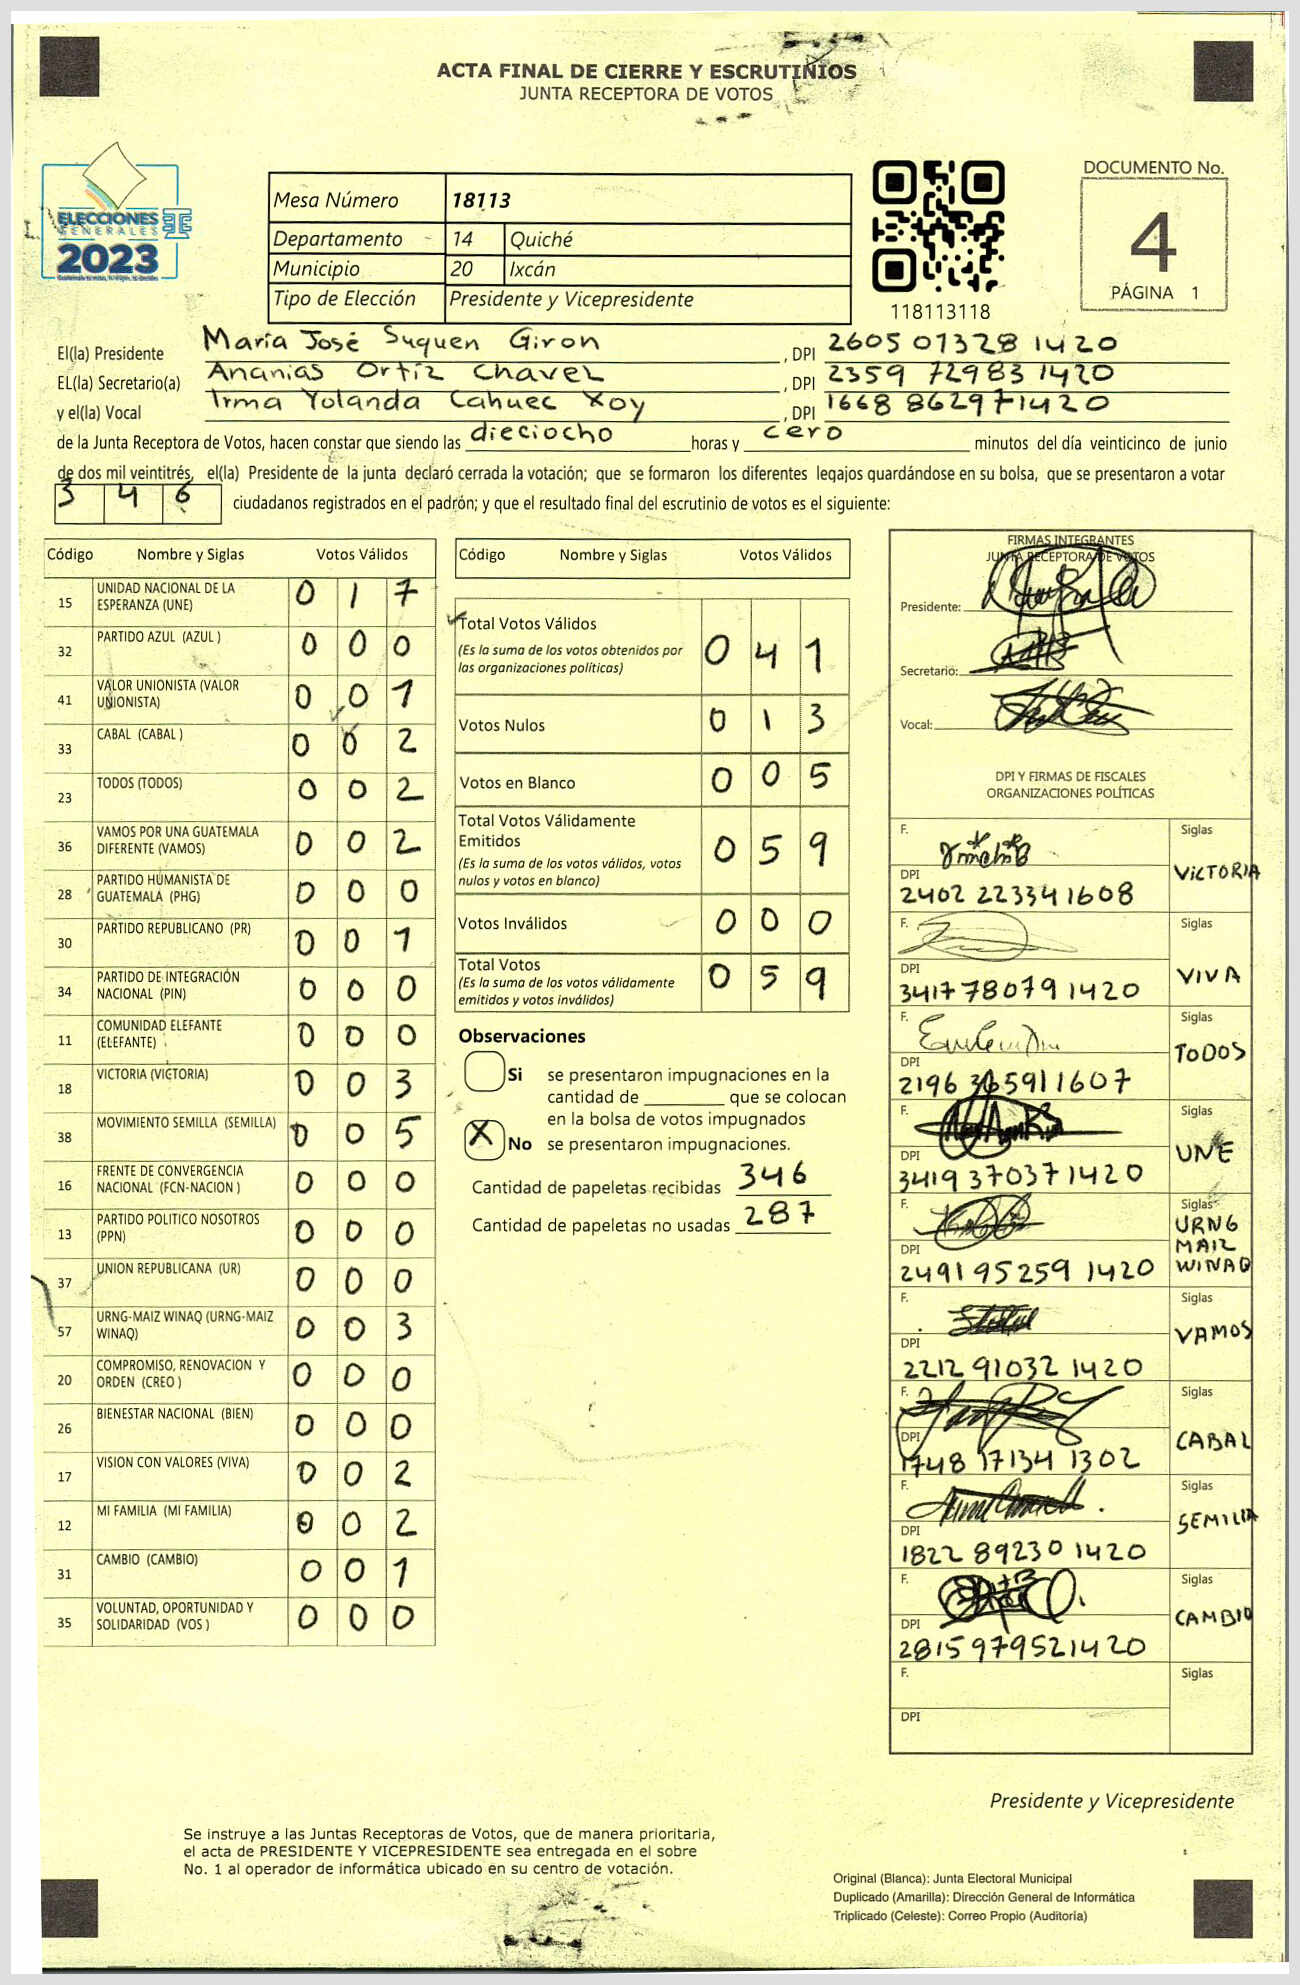 ACTA FINAL DE CIERRE Y ESCRUTINIOS
JUNTA RECEPTORA DE VOTOS
ELECCIONES
GENERALES
2023
Mesa Número 18113
Departamento 14 Quiché
Municipio 20 Ixcán
Tipo de Elección Presidente y Vicepresidente
118113118
DOCUMENTO No.
4
PÁGINA 1
El(la) Presidente María José Suquen Giron , DPI 2605 07328 1420
EL(la) Secretario(a) Ananias Ortíz Chavez , DPI 2359 72983 1420
y el(la) Vocal Irma Yolanda Cahuec Xoy , DPI 1668 86297 1420
de la Junta Receptora de Votos, hacen constar que siendo las dieciocho horas y cero minutos del día veinticinco de junio
de dos mil veintitrés, el(la) Presidente de la junta declaró cerrada la votación; que se formaron los diferentes legajos guardándose en su bolsa, que se presentaron a votar
3 4 6 ciudadanos registrados en el padrón; y que el resultado final del escrutinio de votos es el siguiente:
Código Nombre y Siglas Votos Válidos
15 UNIDAD NACIONAL DE LA ESPERANZA (UNE) 0 1 7
32 PARTIDO AZUL (AZUL ) 0 0 0
41 VALOR UNIONISTA (VALOR UNIONISTA) 0 0 1
33 CABAL (CABAL ) 0 0 2
23 TODOS (TODOS) 0 0 2
36 VAMOS POR UNA GUATEMALA DIFERENTE (VAMOS) 0 0 2
28 PARTIDO HUMANISTA DE GUATEMALA (PHG) 0 0 0
30 PARTIDO REPUBLICANO (PR) 0 0 1
34 PARTIDO DE INTEGRACIÓN NACIONAL (PIN) 0 0 0
11 COMUNIDAD ELEFANTE (ELEFANTE) 0 0 0
18 VICTORIA (VICTORIA) 0 0 3
38 MOVIMIENTO SEMILLA (SEMILLA) 0 0 5
16 FRENTE DE CONVERGENCIA NACIONAL (FCN-NACION ) 0 0 0
13 PARTIDO POLITICO NOSOTROS (PPN) 0 0 0
37 UNION REPUBLICANA (UR) 0 0 0
57 URNG-MAIZ WINAQ (URNG-MAIZ WINAQ) 0 0 3
20 COMPROMISO, RENOVACION Y ORDEN (CREO ) 0 0 0
26 BIENESTAR NACIONAL (BIEN) 0 0 0
17 VISION CON VALORES (VIVA) 0 0 2
12 MI FAMILIA (MI FAMILIA) 0 0 2
31 CAMBIO (CAMBIO) 0 0 1
35 VOLUNTAD, OPORTUNIDAD Y SOLIDARIDAD (VOS ) 0 0 0
Código Nombre y Siglas Votos Válidos
Total Votos Válidos 0 4 1
(Es la suma de los votos obtenidos por
las organizaciones políticas)
Votos Nulos 0 1 3
Votos en Blanco 0 0 5
Total Votos Válidamente
Emitidos 0 5 9
(Es la suma de los votos válidos, votos
nulos y votos en blanco)
Votos Inválidos 0 0 0
Total Votos 0 5 9
(Es la suma de los votos válidamente
emitidos y votos inválidos)
Observaciones
Si se presentaron impugnaciones en la
cantidad de ________ que se colocan
en la bolsa de votos impugnados
X No se presentaron impugnaciones.
Cantidad de papeletas recibidas 346
Cantidad de papeletas no usadas 287
FIRMAS INTEGRANTES
JUNTA RECEPTORA DE VOTOS
Presidente:
Secretario:
Vocal:
DPI Y FIRMAS DE FISCALES
ORGANIZACIONES POLÍTICAS
F. Siglas
VICTORIA
DPI
2402 22334 1608
F. Siglas
VIVA
DPI
3417 78079 1420
F. Siglas
TODOS
DPI
2196 36591 1607
F. Siglas
UNE
DPI
3419 37037 1420
F. Siglas
URNG
MAIZ
WINAQ
DPI
2491 95259 1420
F. Siglas
VAMOS
DPI
2212 91032 1420
F. Siglas
CABAL
DPI
1748 17134 1302
F. Siglas
SEMILIA
DPI
1822 89230 1420
F. Siglas
CAMBIO
DPI
2815 97952 1420
F. Siglas
DPI
Presidente y Vicepresidente
Se instruye a las Juntas Receptoras de Votos, que de manera prioritaria,
el acta de PRESIDENTE Y VICEPRESIDENTE sea entregada en el sobre
No. 1 al operador de informática ubicado en su centro de votación.
Original (Blanca): Junta Electoral Municipal
Duplicado (Amarilla): Dirección General de Informática
Triplicado (Celeste): Correo Propio (Auditoría)